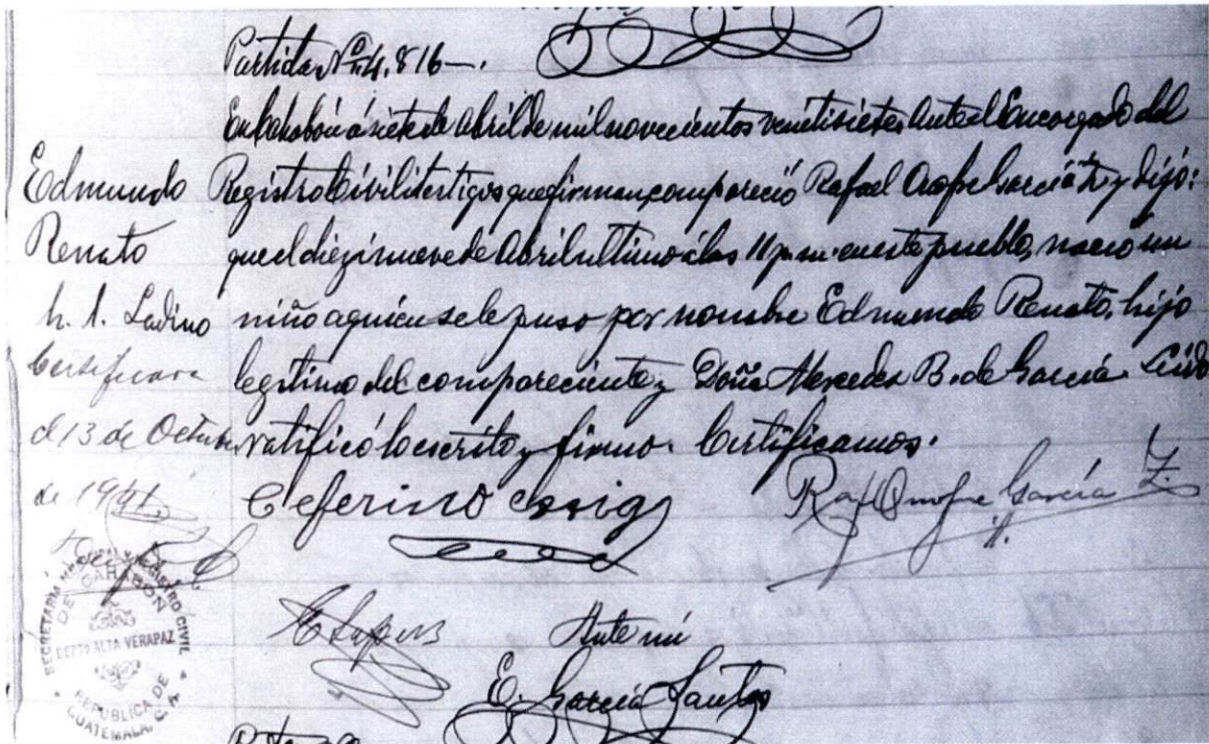 Partida Nº 4.816—.
En Cahabón á siete de Abril de mil novecientos veintisiete. Ante el Encargado del
Edmundo Registro Civil i testigos que firman, compareció Rafael García Z. y dijó:
Renato que el diezinueve de Abril ultimo á las 11 p.m. en este pueblo, nació un
h. l. Ladino niño a quien se le puso por nombre Edmundo Renato, hijo
legitimo del compareciente y Doña Mercedes B. de García. Leido
el 13 de Octubre ratificó lo escrito y firmo. Certificamos.
de 1941. Ceferino Raf Onofre García Z.
Ante mi
E. García Santos
SECRETARIA MUNICIPAL Y REGISTRO CIVIL
DE CAHABON
DEPTO ALTA VERAPAZ
REPUBLICA DE
GUATEMALA, C. A.